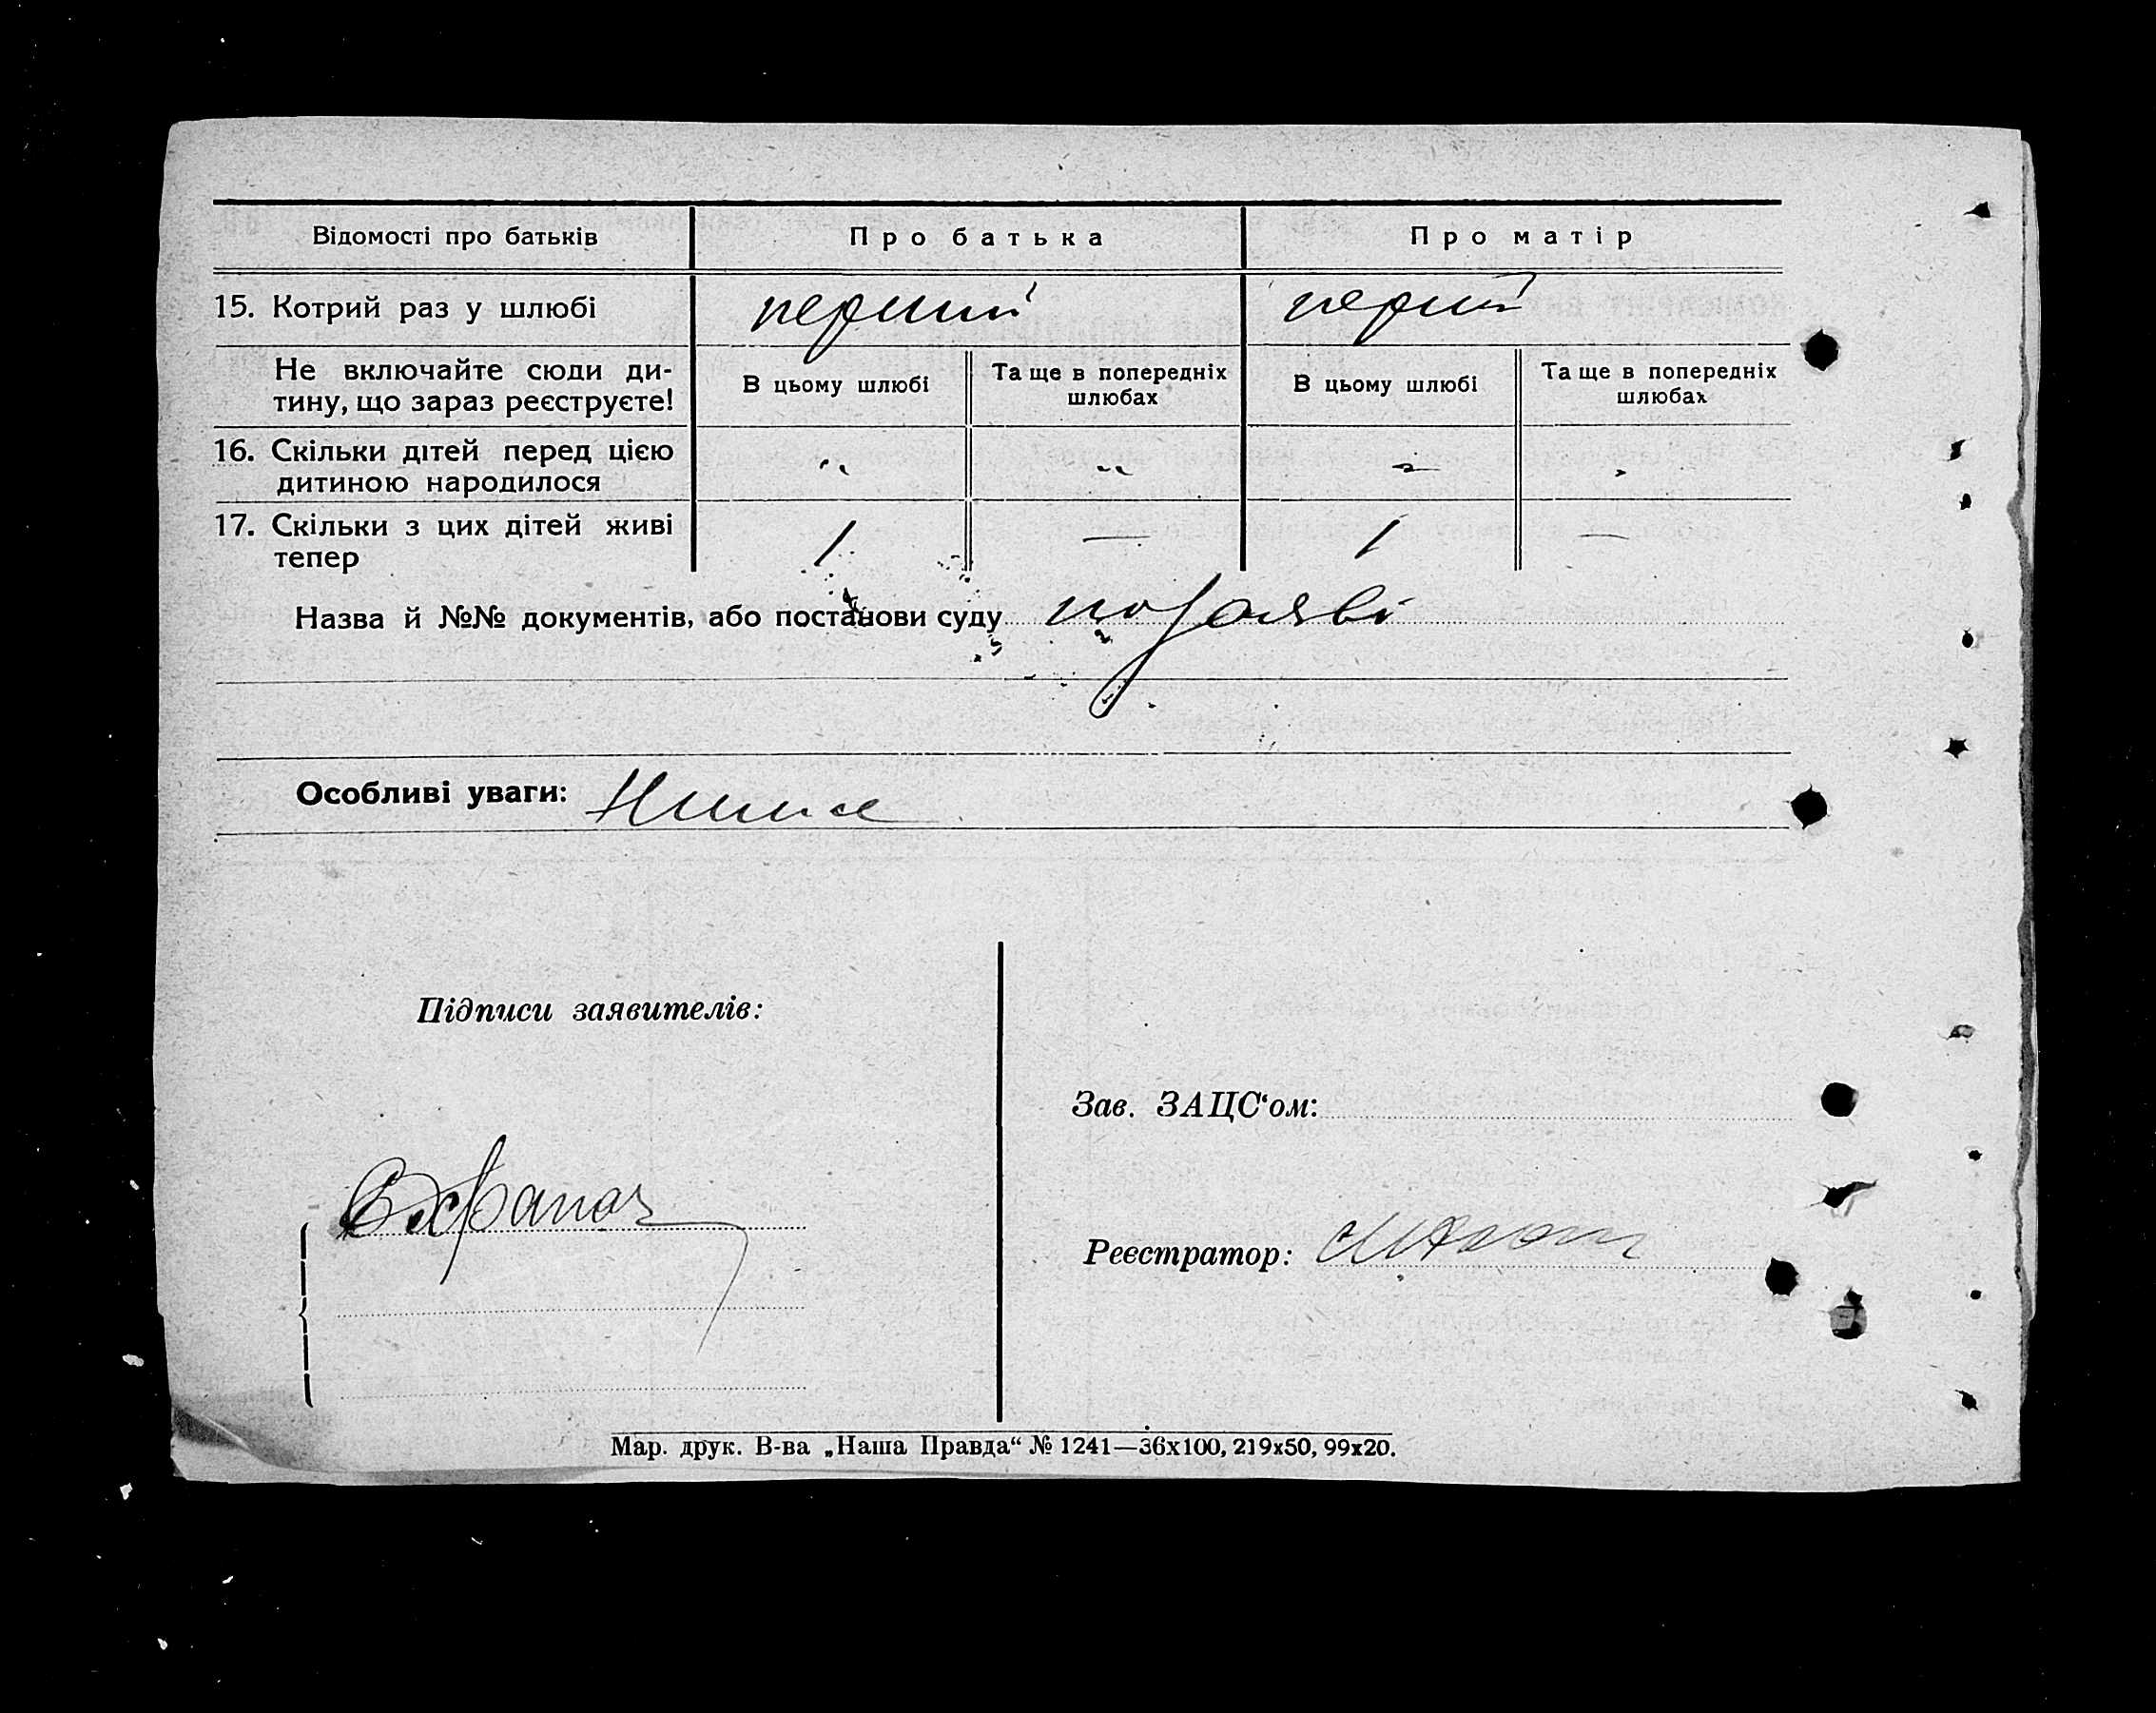 Відомості про батьків Про батька Про матір
15. Котрий раз у шлюбі перший перший
Не включайте сюди ди-
тину, що зараз реєструєте!
В цьому шлюбі
Та ще в попередніх
шлюбах
В цьому шлюбі
Та ще в попередніх
шлюбах
16. Скільки дітей перед цією
дитиною народилося
17. Скільки з цих дітей живі
тепер
1 — 1 —
Назва й №№ документів, або постанови суду по заяві
Особливі уваги:
Підписи заявителів:
Зав. ЗАЦС‘ом:
Реєстратор:
Мар. друк. В-ва „Наша Правда“ № 1241—36х100, 219х50, 99х20.